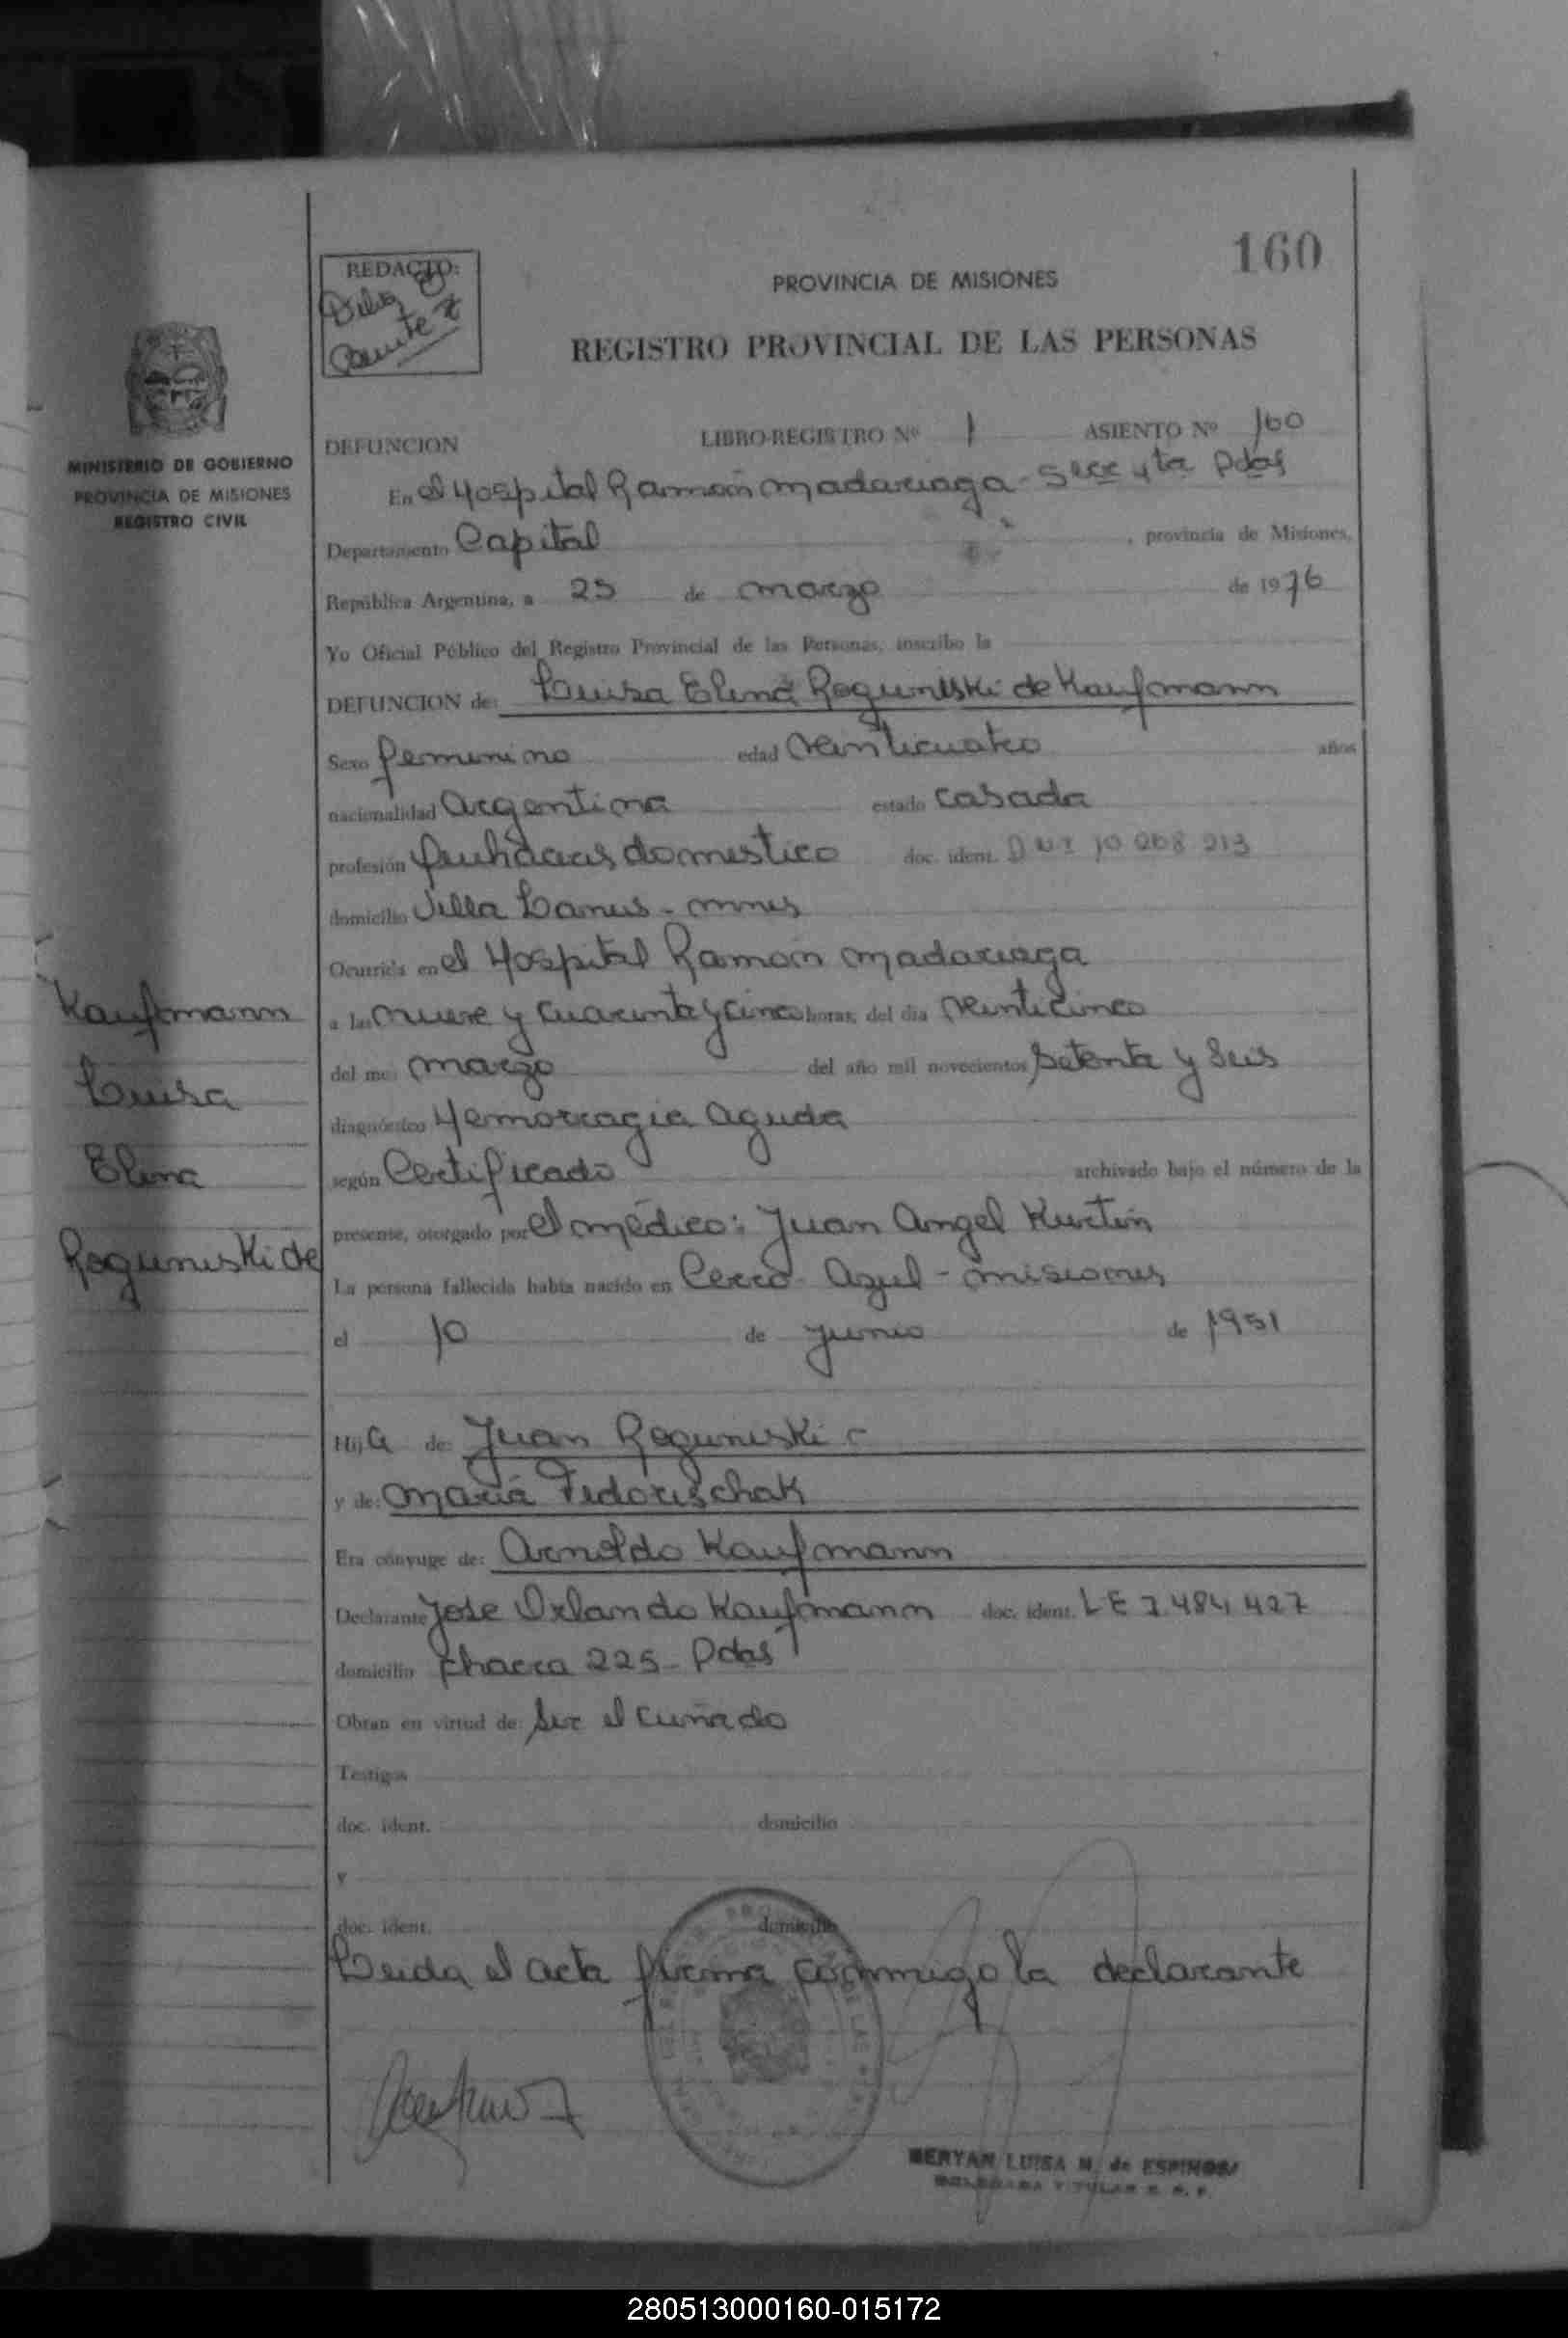 160
REDACTO:
PROVINCIA DE MISIONES
REGISTRO PROVINCIAL DE LAS PERSONAS
MINISTERIO DE GOBIERNO
PROVINCIA DE MISIONES
REGISTRO CIVIL
DEFUNCION LIBRO-REGISTRO Nº 1 ASIENTO Nº 160
En el Hospital Ramón Madariaga - Secc 4ta Pdas
Departamento Capital , provincia de Misiones,
República Argentina, a 25 de marzo de 1976
Yo Oficial Público del Registro Provincial de las Personas, inscribo la
DEFUNCION de: Luisa Elena Roguniski de Kaufmann
Sexo femenino edad veinticuatro años
nacionalidad argentina estado casada
profesión domestico doc. ident. DNI 10 268 213
domicilio Villa Lanus - mnes
Ocurrida en el Hospital Ramón Madariaga
a las nueve y cuarenta y cinco horas, del día veinticinco
del mes marzo del año mil novecientos setenta y seis
diagnóstico Hemorragia aguda
según Certificado archivado bajo el número de la
presente, otorgado por el médico: Juan Angel Kurtin
La persona fallecida había nacido en Cerro Azul - misiones
el 10 de junio de 1951
Kaufmann
Luisa
Elena
Roguniski de
Hija de: Juan Roguniski
y de: Maria Fedorischak
Era cónyuge de: Arnoldo Kaufmann
Declarante Jose Orlando Kaufmann doc. ident. LE 7.484.427
domicilio chacra 225 - Pdas
Obran en virtud de ser el cuñado
Testigos
doc. ident. domicilio
y
doc. ident. domicilio
Leida el acta firma conmigo la declarante
LUISA M. de ESPINOSA
280513000160-015172